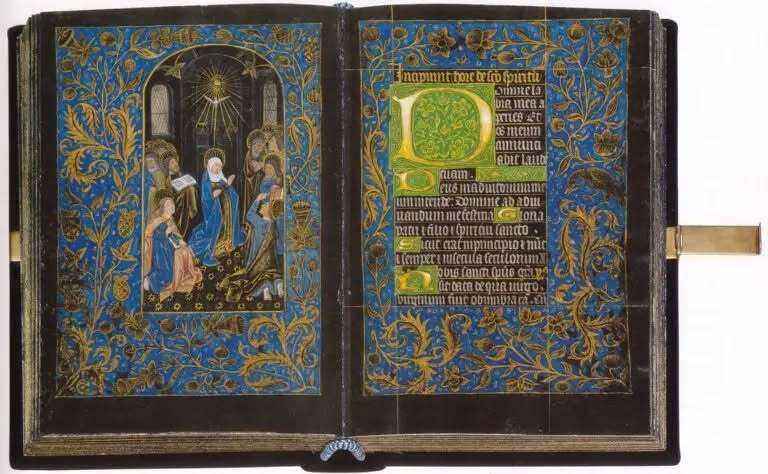 Incipiunt hore de sco spiritu
Domine la
bia mea a
peries Et
os meum
annunci
abit laud
tuam.
Deus in adiutorium me
um intende. Domine ad adiu
uandum me festina Gloria
patri et filio et spiritui sancto.
Sicut erat in principio et nūc
et semper et in secula seculorum
Nobis sancti spūs gra
sit data de qua virgo
virginum fuit obumbrata.